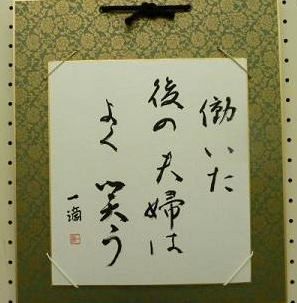 働いた
後の夫婦は
よく笑う
一滴